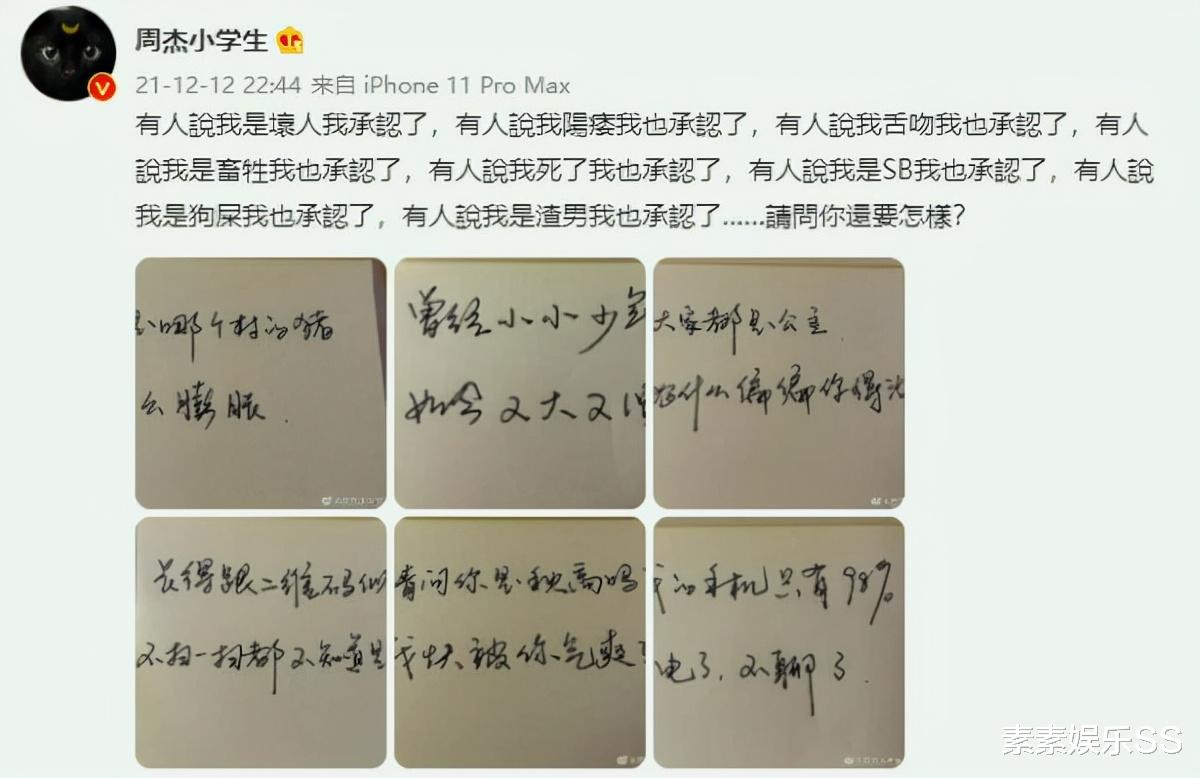 周杰小学生
21-12-12 22:44 来自 iPhone 11 Pro Max
有人說我是壞人我承認了，有人說我陽痿我也承認了，有人說我舌吻我也承認了，有人
說我是畜牲我也承認了，有人說我死了我也承認了，有人說我是SB我也承認了，有人說
我是狗屎我也承認了，有人說我是渣男我也承認了……請問你還要怎樣？
哪个村的猪
么膨胀.
曾经小小少年
如今又大又
大家都是公主
凭什么偏偏你得
长得跟二维码似
不扫一扫都不知道是
请问你是秋高吗
我快被你气爽了
我的手机只有98%
电了，不聊了.
素素娱乐SS